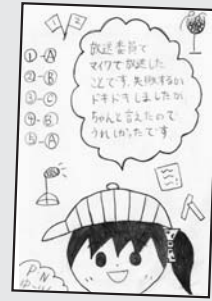 1 2
①-Ⓐ
②-Ⓑ
③-Ⓒ
④-Ⓑ
⑤-Ⓐ
放送委員で
マイクで放送した
ことです。失敗するか
ドキドキしましたが、
ちゃんと言えたので
うれしかったです
P.N